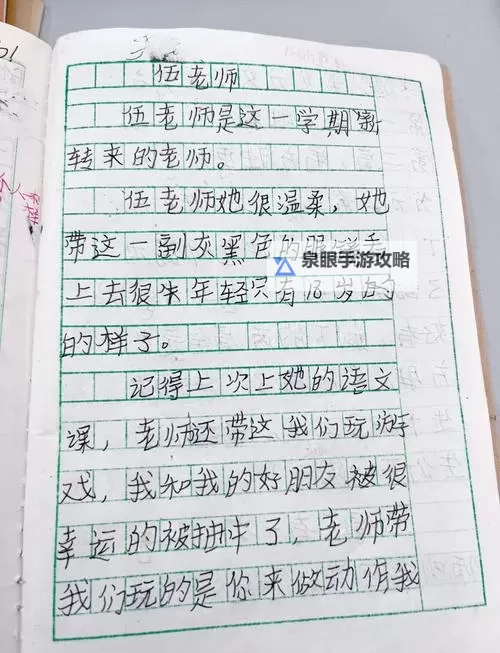 伍老师
伍老师是这一学期新
转来的老师。
伍老师她很温柔，她
带这一副灰黑色的眼镜看
泉眼手游攻略
上去很年轻只有18岁的
的样子。
记得上次上她的语文
课，老师还带这我们玩游
戏，我和我的好朋友被很
幸运的被抽中了，老师带
我们玩的是你来做动作我